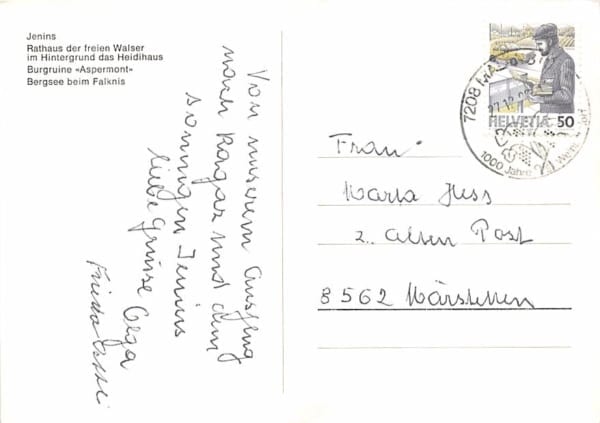 Jenins
Rathaus der freien Walser
im Hintergrund das Heidihaus
Burgruine «Aspermont»
Bergsee beim Falknis
Von unserem Ausflug
nach Ragaz und dem
sonnigen Jenins
liebe Grüsse Olga
Frieda
HELVETIA 50
7208
1000 Jahre
Frau
Marta Hess
z. alten Post
8562 Märstetten